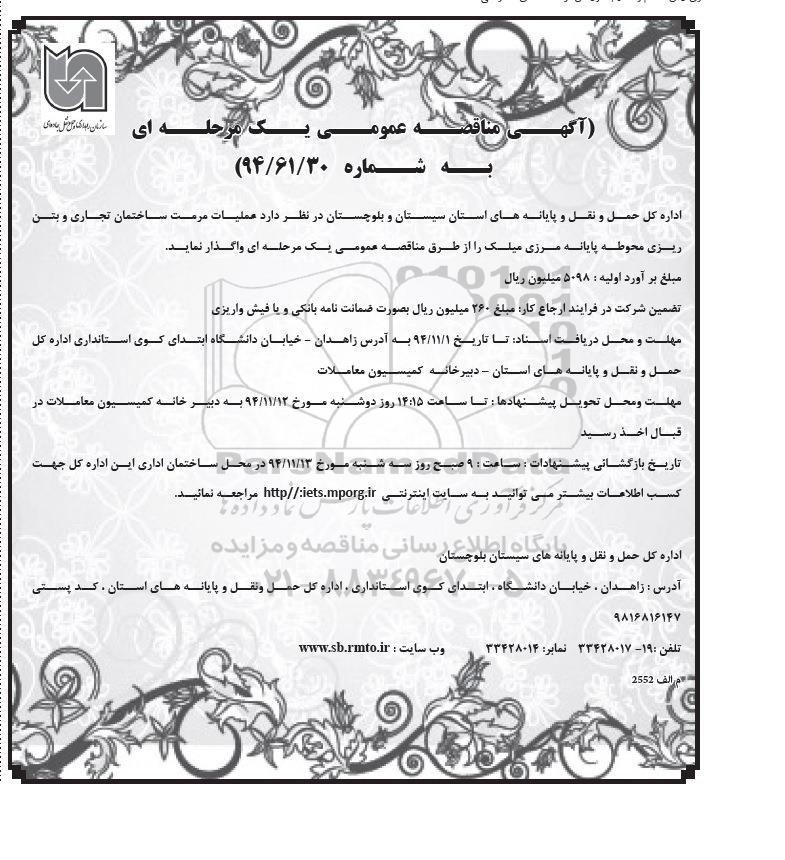 سازمان راهداری و حمل و نقل جاده‌ای
(آگهی مناقصه عمومی یک مرحله ای
به شماره ۹۴/۶۱/۳۰)
اداره کل حمل و نقل و پایانه های استان سیستان و بلوچستان در نظر دارد عملیات مرمت ساختمان تجاری و بتن
ریزی محوطه پایانه مرزی میلک را از طرق مناقصه عمومی یک مرحله ای واگذار نماید.
مبلغ بر آورد اولیه : ۵۰۹۸ میلیون ریال
تضمین شرکت در فرایند ارجاع کار: مبلغ ۲۶۰ میلیون ریال بصورت ضمانت نامه بانکی و یا فیش واریزی
مهلت و محل دریافت اسناد: تا تاریخ ۹۴/۱۱/۱ به آدرس زاهدان - خیابان دانشگاه ابتدای کوی استانداری اداره کل
حمل و نقل و پایانه های استان – دبیرخانه کمیسیون معاملات
مهلت ومحل تحویل پیشنهادها : تا ساعت ۱۴:۱۵ روز دوشنبه مورخ ۹۴/۱۱/۱۲ به دبیر خانه کمیسیون معاملات در
قبال اخذ رسید
تاریخ بازگشائی پیشنهادات : ساعت : ۹ صبح روز سه شنبه مورخ ۹۴/۱۱/۱۳ در محل ساختمان اداری این اداره کل جهت
کسب اطلاعات بیشتر می توانید به سایت اینترنتی http//:iets.mporg.ir مراجعه نمائید.
ParsNamadData
مرکز فرآوری اطلاعات پارس نماد داده ها
پایگاه اطلاع رسانی مناقصه و مزایده
اداره کل حمل و نقل و پایانه های سیستان بلوچستان
۰۲۱-۸۸۳۴۹۶۷۰
آدرس : زاهدان ، خیابان دانشگاه ، ابتدای کوی استانداری ، اداره کل حمل ونقل و پایانه های استان ، کد پستی
۹۸۱۶۸۱۶۱۴۷
تلفن :۱۹- ۳۳۴۲۸۰۱۷ نمابر: ۳۳۴۲۸۰۱۴ وب سایت : www.sb.rmto.ir
م.الف 2552